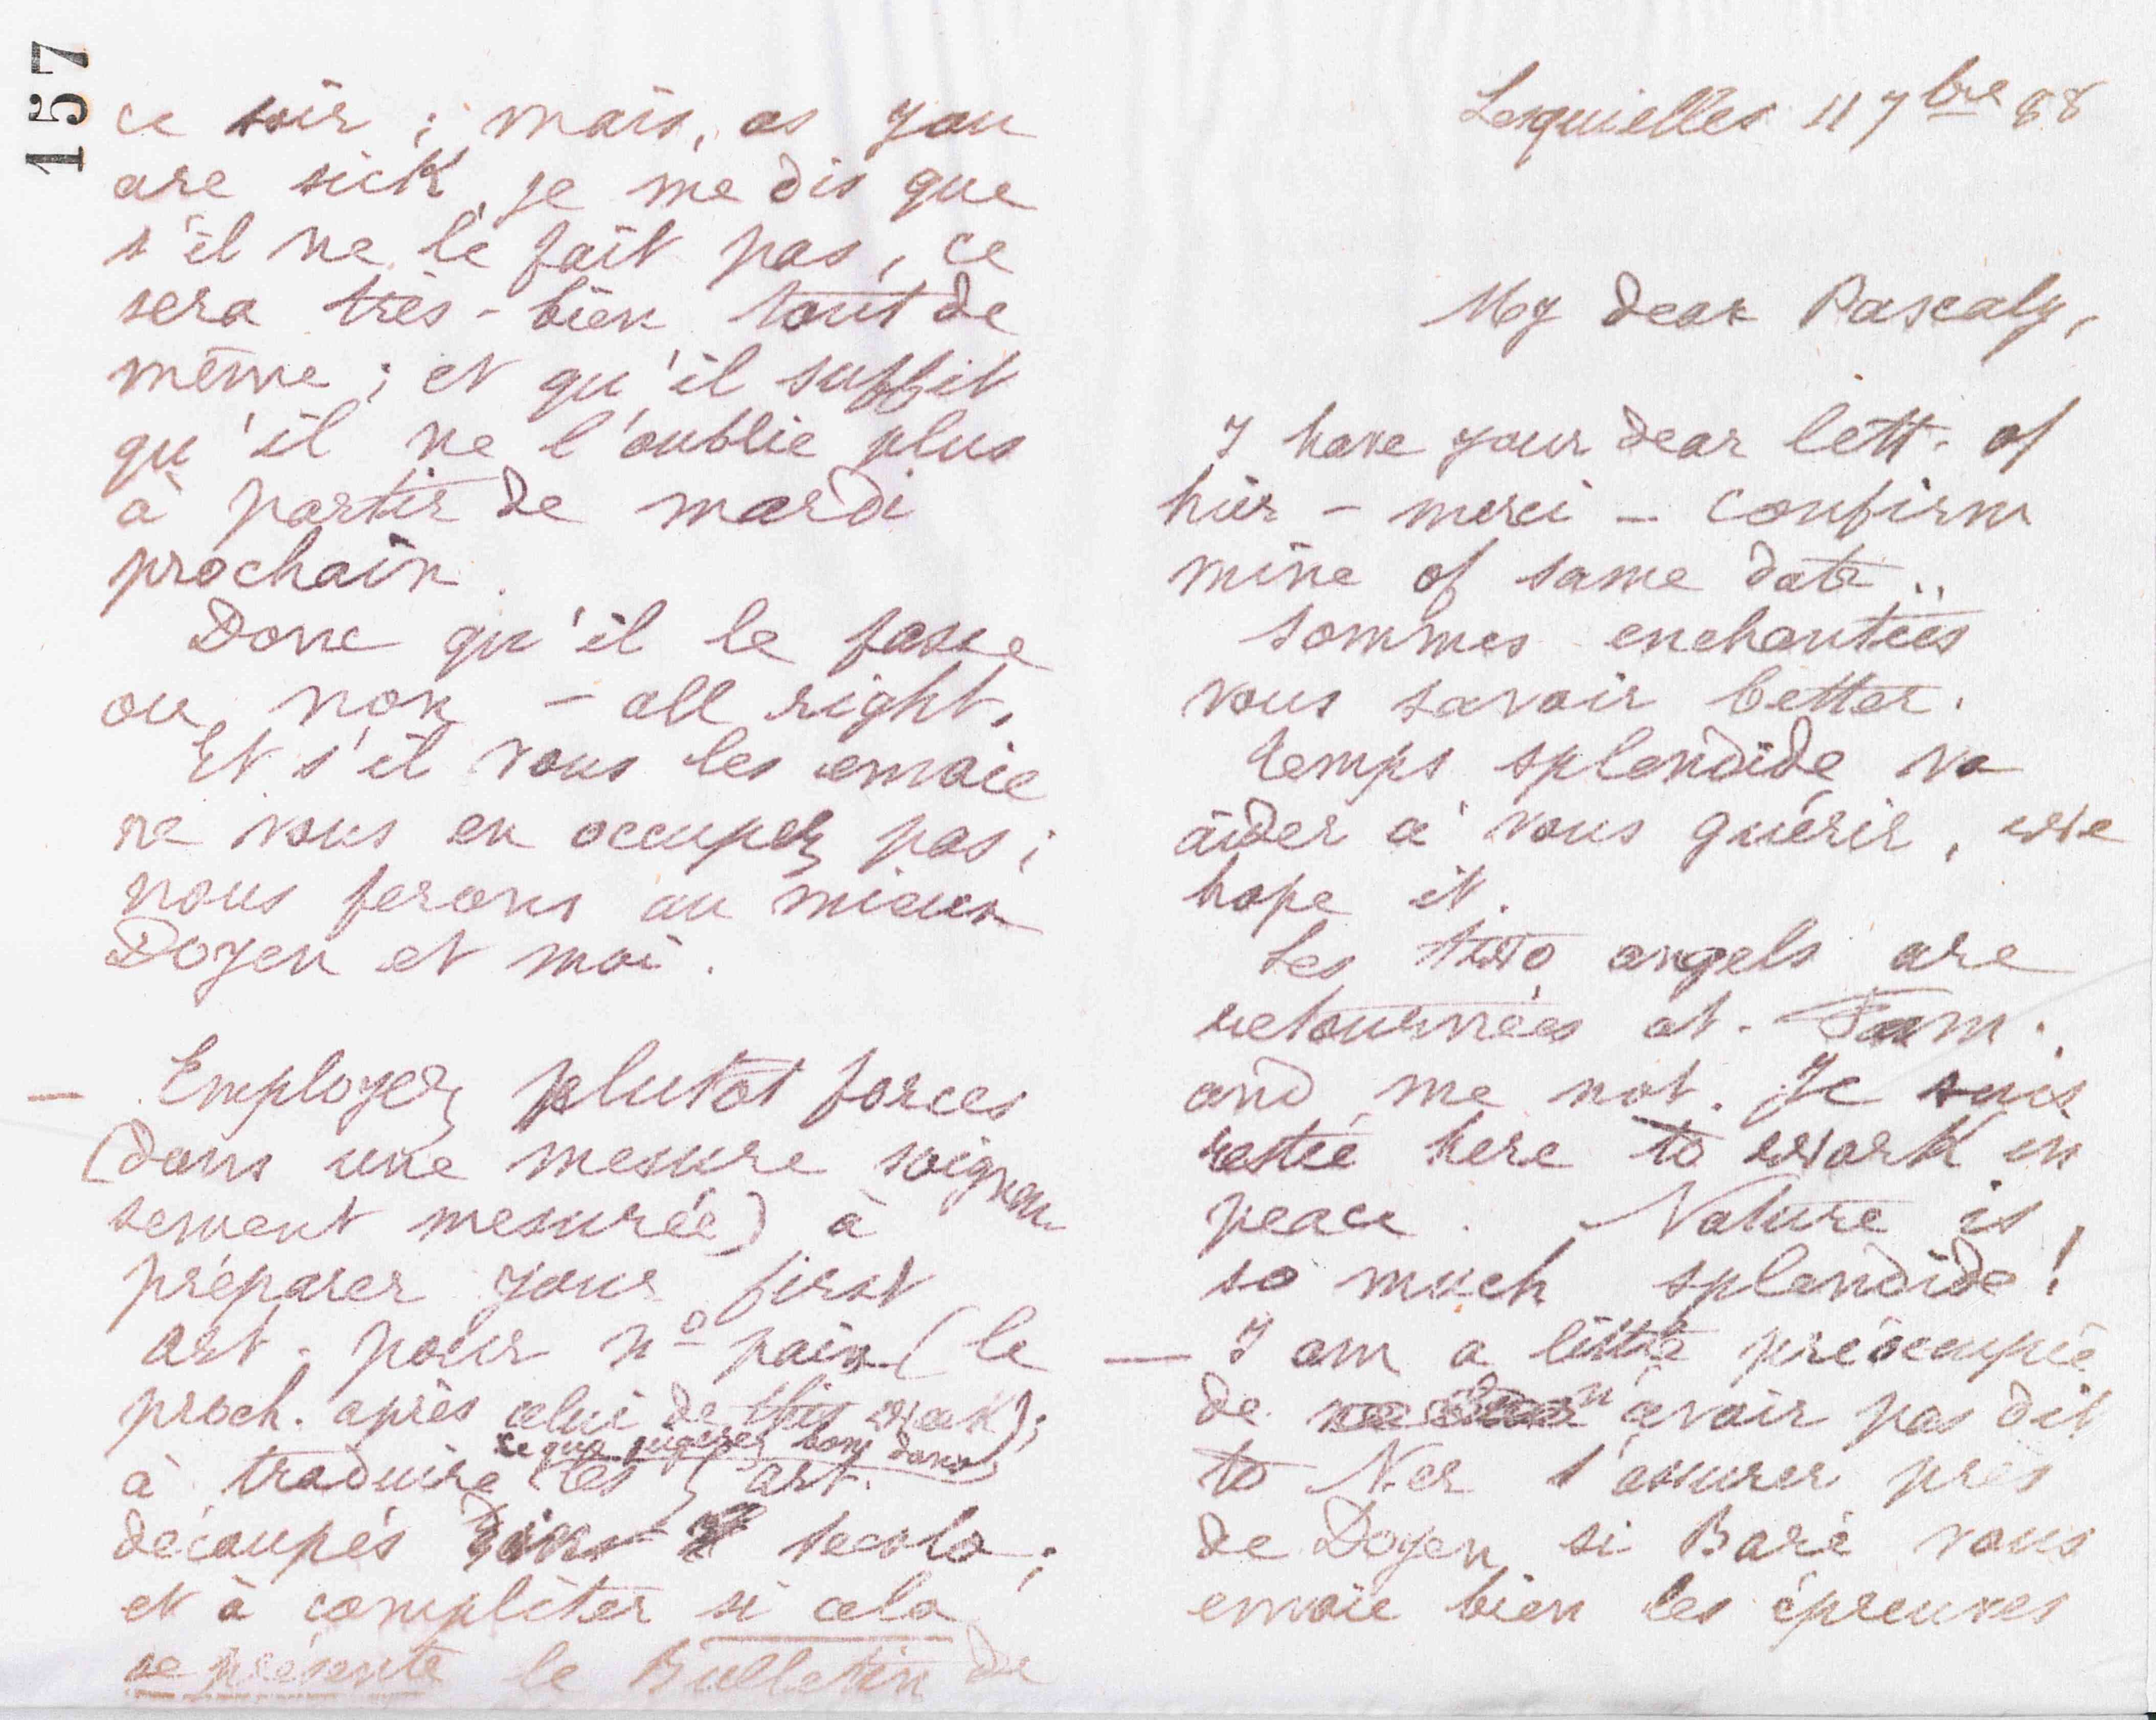 Lesquielles 11 7bre 88
My dear Pascaly,
I have your dear lett. of
hier – merci – confirm
mine of same date..
Sommes enchantées
vous savoir better.
Temps splendide va
aider à vous guérir, we
hope it.
Les two angels are
retournées at. Fam.
and me not. Je suis
restée here to work in
peace. Nature is
so much splendide!
— I am a little préoccupée
de n'avoir pas dit
to Ner s'assurer près
de Doyen si Baré vous
envoie bien les épreuves
157
ce soir ; mais, as you
are sick, je me dis que
s'il ne le fait pas, ce
sera très-bien tout de
même ; et qu'il suffit
qu'il ne l'oublie plus
à partir de mardi
prochain.
Donc qu'il le fasse
ou non – all right.
Et s'il vous les envoie
ne vous en occupez pas ;
nous ferons au mieux
Doyen et moi.
— Employez plutôt forces
(dans une mesure soigneu
sement mesurée) à
préparer your first
art. pour no pair (le
proch. après celui de this week);
ce que jugerez bon dans
à traduire les art.
découpés Secolo ;
et à compléter si cela
se présente le Bulletin de